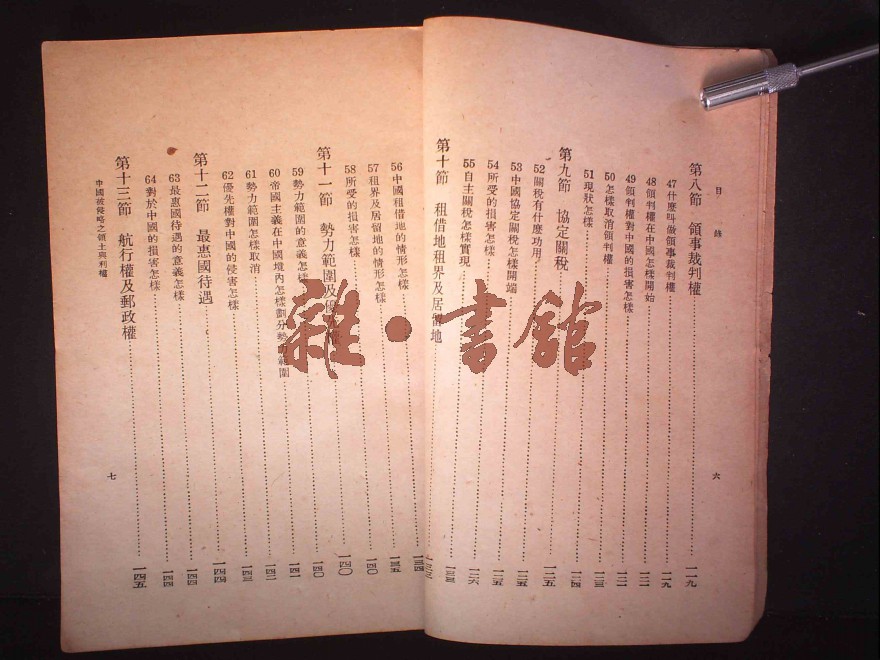 目錄
第八節 領事裁判權……一一九
47 什麼叫做領事裁判權……一一九
48 領判權在中國怎樣開始……一二一
49 領判權對中國的損害怎樣……一二一
50 怎樣取消領判權……一二三
51 現狀怎樣……一二四
第九節 協定關稅……一二五
52 關稅有什麼功用……一二五
53 中國協定關稅怎樣開端……一二五
54 所受的損害怎樣……一二六
55 自主關稅怎樣實現……一三三
第十節 租借地租界及居留地……一三三
六
56 中國租借地的情形怎樣……一三四
57 租界及居留地的情形怎樣……一三五
58 所受的損害怎樣……一四〇
第十一節 勢力範圍及優……一四〇
59 勢力範圍的意義怎樣……一四〇
60 帝國主義在中國境內怎樣劃分勢力範圍……一四一
61 勢力範圍怎樣取消……一四二
62 優先權對中國的侵害怎樣……一四三
第十二節 最惠國待遇……一四四
63 最惠國待遇的意義怎樣……一四四
64 對於中國的損害怎樣……一四四
第十三節 航行權及郵政權……一四五
中國被侵略之領土與利權
七
雜·書館